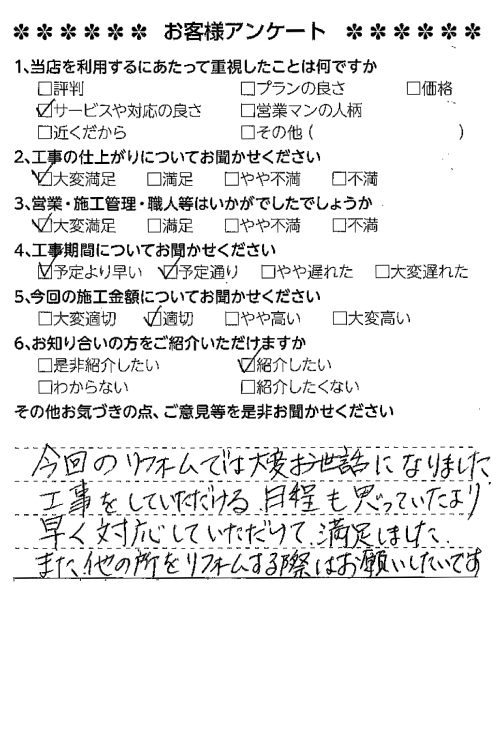 ✽✽✽✽✽✽ お客様アンケート ✽✽✽✽✽✽
1、当店を利用するにあたって重視したことは何ですか
□評判 □プランの良さ □価格
☑サービスや対応の良さ □営業マンの人柄
□近くだから □その他 ( )
2、工事の仕上がりについてお聞かせください
☑大変満足 □満足 □やや不満 □不満
3、営業・施工管理・職人等はいかがでしたでしょうか
☑大変満足 □満足 □やや不満 □不満
4、工事期間についてお聞かせください
☑予定より早い ☑予定通り □やや遅れた □大変遅れた
5、今回の施工金額についてお聞かせください
□大変適切 ☑適切 □やや高い □大変高い
6、お知り合いの方をご紹介いただけますか
□是非紹介したい ☑紹介したい
□わからない □紹介したくない
その他お気づきの点、ご意見等を是非お聞かせください
今回のリフォームでは大変お世話になりました
工事をしていただける、日程も思っていたより
早く対応していただけて、満足しました。
また、他の所をリフォームする際はお願いしたいです